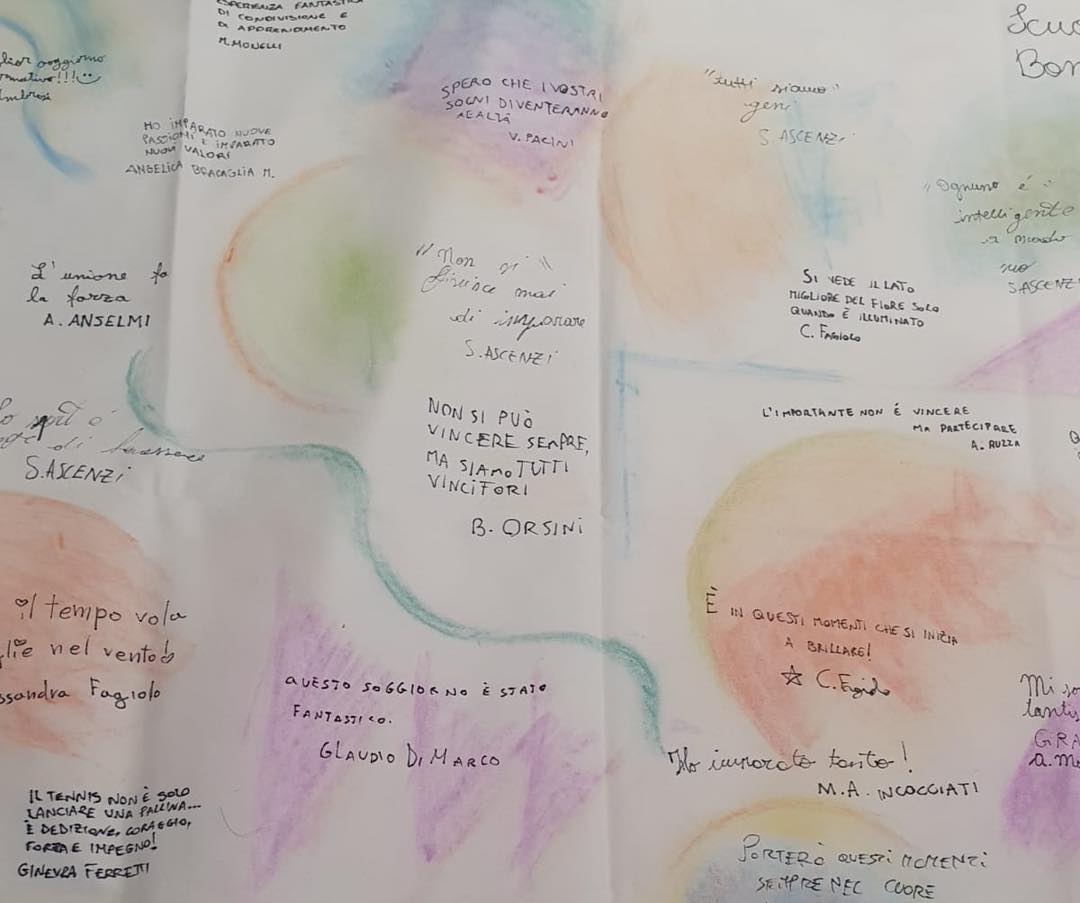 ESPERIENZA FANTASTICA
DI CONDIVISIONE E
DI APPRENDIMENTO
M. MONELLI
Scuo
Bon
glior soggiorno
rmativo!!!
Ambrosi
HO IMPARATO NUOVE
PASSIONI E IMPARATO
NUOVI VALORI
ANGELICA BRACAGLIA M.
SPERO CHE I VOSTRI
SOGNI DIVENTERANNO
REALTÀ
V. PACINI
"tutti siamo"
geni
S. ASCENZI
"Ognuno é"
intelligente
a modo
suo
S. ASCENZI
L'unione fa
la forza
A. ANSELMI
"Non si"
finisce mai
di imparare
S. ASCENZI
SI VEDE IL LATO
MIGLIORE DEL FIORE SOLO
QUANDO È ILLUMINATO
C. FAGIOLO
Lo sport é
di benessere
S. ASCENZI
NON SI PUÒ
VINCERE SEMPRE,
MA SIAMO TUTTI
VINCITORI
B. ORSINI
L'IMPORTANTE NON É VINCERE
MA PARTECIPARE
A. RUZZA
il tempo vola
glie nel vento
ssandra Fagiolo
È IN QUESTI MOMENTI CHE SI INIZIA
A BRILLARE!
C. Fagiolo
QUESTO SOGGIORNO È STATO
FANTASTICO.
GLAUDIO DI MARCO
Mi so
tantis
GRA
a.m
Ho imparato tanto!
M.A. INCOCCIATI
IL TENNIS NON È SOLO
LANCIARE UNA PALLINA...
È DEDIZIONE, CORAGGIO,
FORZA E IMPEGNO!
GINEVRA FERRETTI
PORTERÒ QUESTI MOMENTI
SEMPRE NEL CUORE